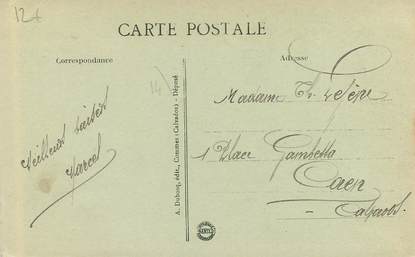 12
CARTE POSTALE
Correspondance
Adresse
14
Madame Th. Lefèvre
1 Place Gambetta
Caen
Calvados
Meilleurs baisers
Marcel
A. Dubosq, édit., Commes (Calvados) - Déposé
NANTES